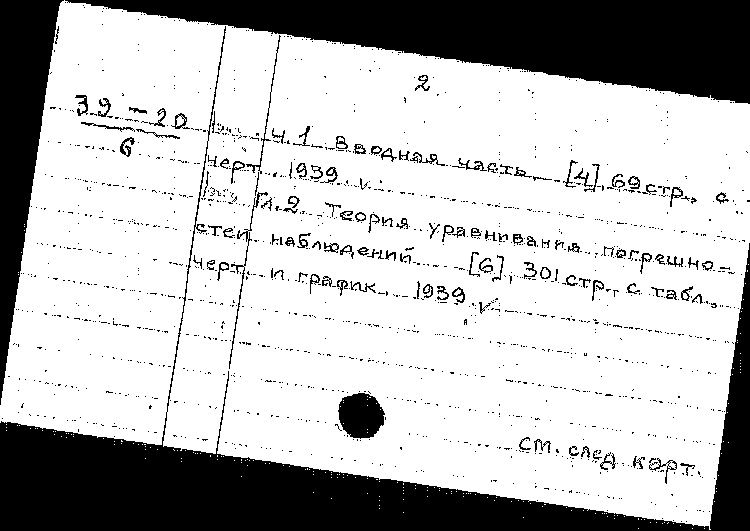 2
39 – 20
6
Ч.1 Вводная часть. [4], 69 стр., с
черт. 1939.
Гл.2 Теория уравнивания погрешно-
стей наблюдений [6], 301 стр., с табл.,
черт. и график. 1939.
см. след карт.